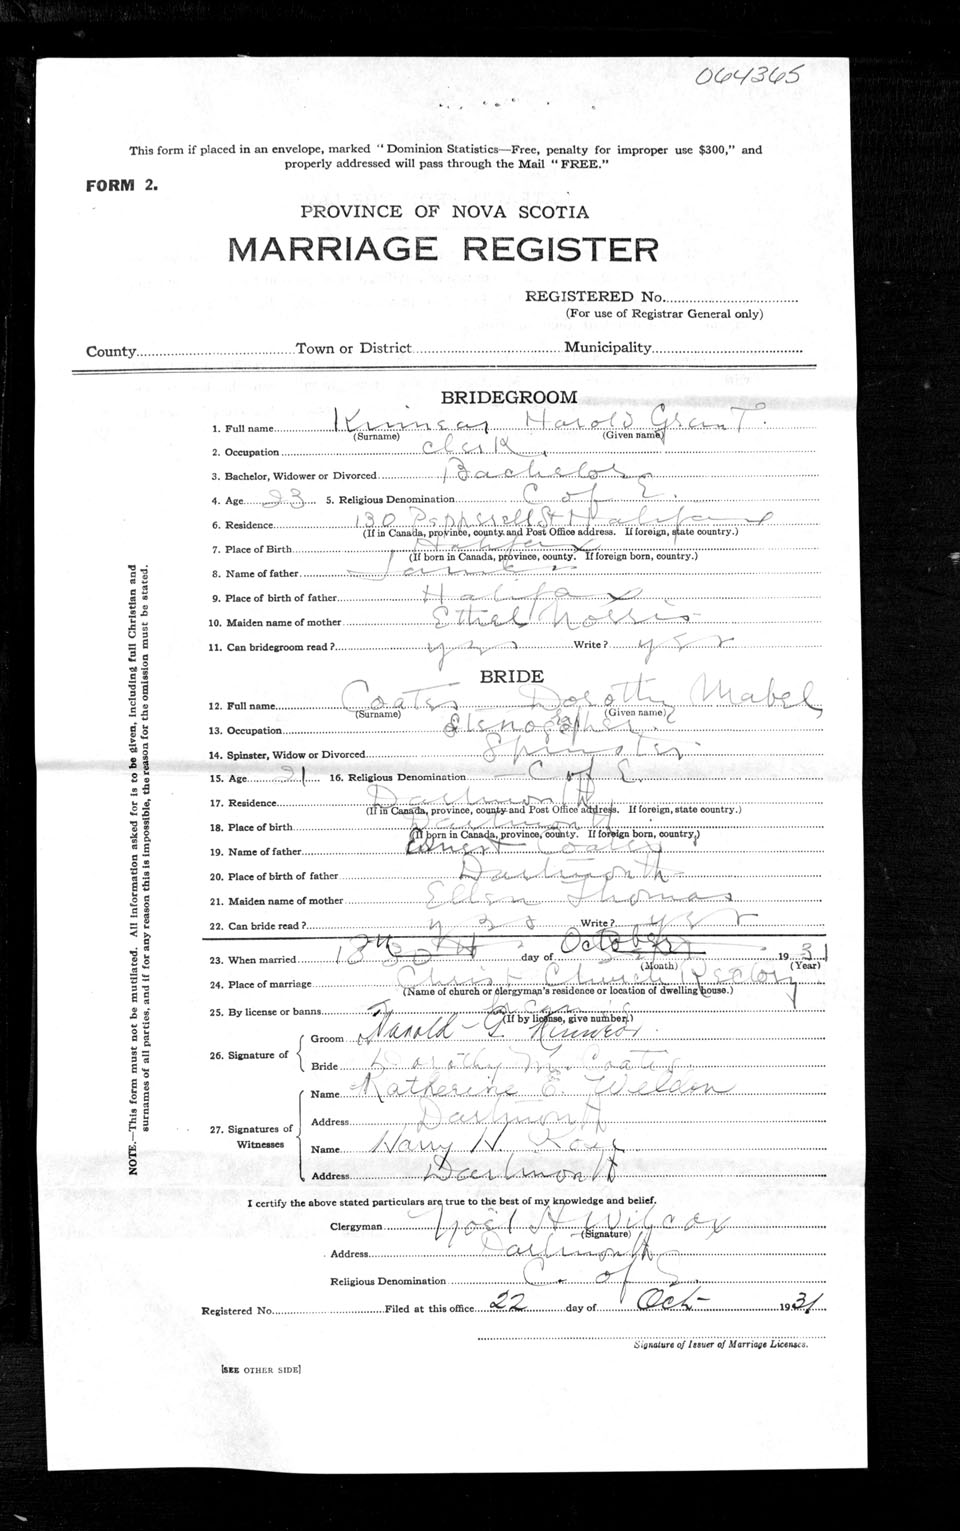 064365
This form if placed in an envelope, marked "Dominion Statistics—Free, penalty for improper use $300," and
properly addressed will pass through the Mail "FREE."
FORM 2.
PROVINCE OF NOVA SCOTIA
MARRIAGE REGISTER
REGISTERED No.
(For use of Registrar General only)
County Town or District Municipality
BRIDEGROOM
1. Full name Kinnear Harold Grant
(Surname) (Given name)
2. Occupation Clerk
3. Bachelor, Widower or Divorced Bachelor
4. Age 23 5. Religious Denomination C of E.
6. Residence 130 Pepperell St Halifax
(If in Canada, province, county and Post Office address. If foreign, state country.)
7. Place of Birth Halifax
(If born in Canada, province, county. If foreign born, country.)
8. Name of father James
9. Place of birth of father Halifax
10. Maiden name of mother Ethel Norris
11. Can bridegroom read? yes Write? yes
BRIDE
12. Full name Coates Dorothy Mabel
(Surname) (Given name)
13. Occupation Stenographer
14. Spinster, Widow or Divorced Spinster
15. Age 21 16. Religious Denomination C of E
17. Residence Dartmouth
(If in Canada, province, county and Post Office address. If foreign, state country.)
18. Place of birth Dartmouth
(If born in Canada, province, county. If foreign born, country.)
19. Name of father Ernest Coates
20. Place of birth of father Dartmouth
21. Maiden name of mother Ellen Thomas
22. Can bride read? yes Write? yes
23. When married day of October 1931
(Month) (Year)
24. Place of marriage Christ Church Rectory
(Name of church or clergyman's residence or location of dwelling house.)
25. By license or banns
(If by license, give number.)
26. Signature of
Groom Harold G. Kinnear
Bride Dorothy M. Coates
27. Signatures of Witnesses
Name Katherine E. Weldon
Address Dartmouth
Name Harry H.
Address Dartmouth
I certify the above stated particulars are true to the best of my knowledge and belief.
Clergyman Noel H Wilcox
(Signature)
Address Dartmouth
Religious Denomination C. of E.
Registered No. Filed at this office 22 day of Oct 1931
Signature of Issuer of Marriage Licenses.
[SEE OTHER SIDE]
NOTE.—This form must not be mutilated. All information asked for is to be given, including full Christian and
surnames of all parties, and if for any reason this is impossible, the reason for the omission must be stated.